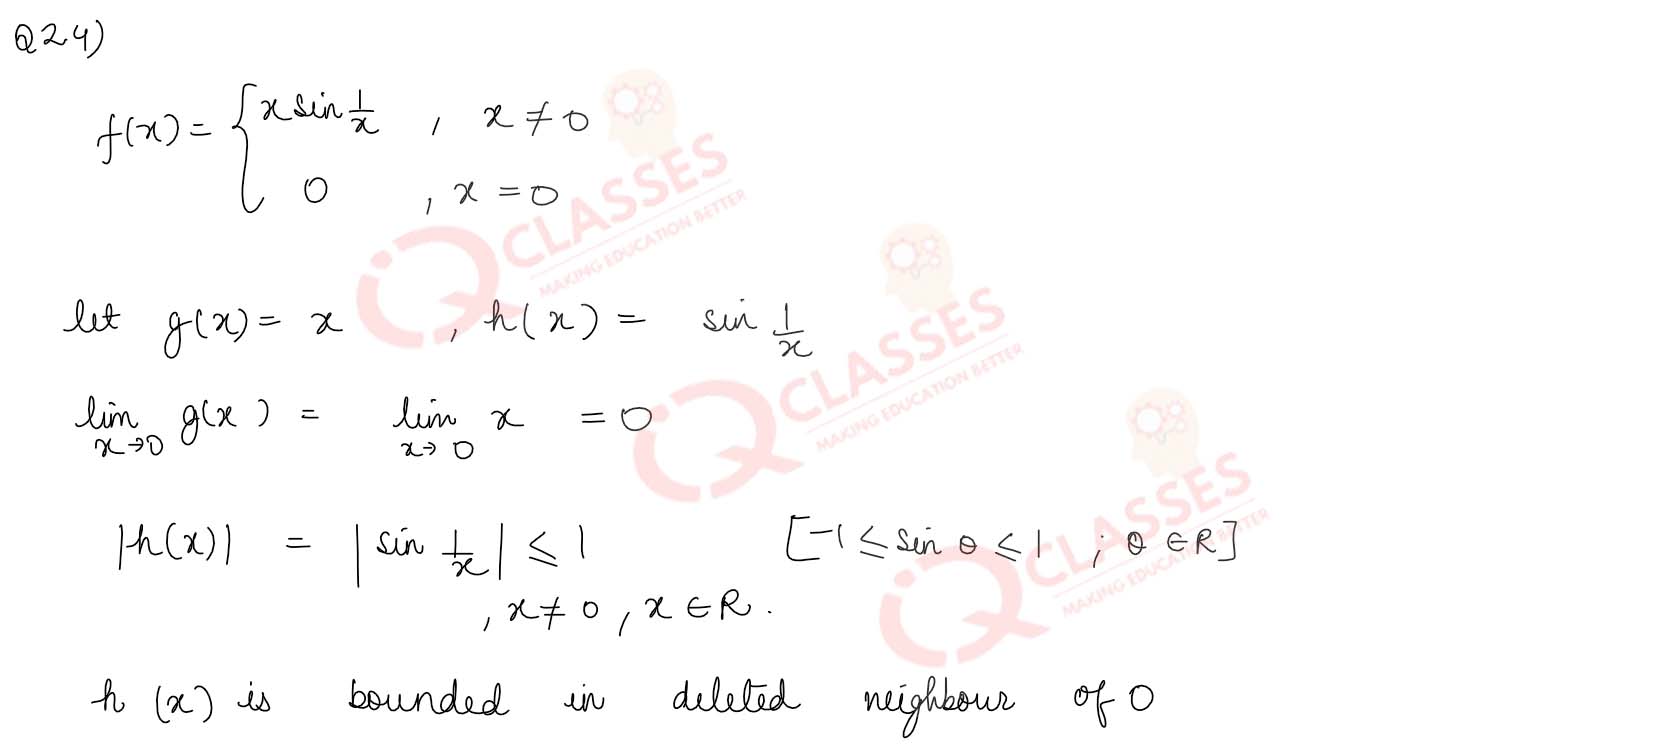 Q24)
f(x) = { x sin 1/x , x ≠ 0
0 , x = 0
let g(x) = x , h(x) = sin 1/x
lim x→0 g(x) = lim x→0 x = 0
|h(x)| = |sin 1/x| ≤ 1 [-1 ≤ sin θ ≤ 1 ; θ ∈ R]
, x ≠ 0 , x ∈ R.
h (x) is bounded in deleted neighbour of 0
iQ CLASSES
MAKING EDUCATION BETTER
iQ CLASSES
MAKING EDUCATION BETTER
iQ CLASSES
MAKING EDUCATION BETTER